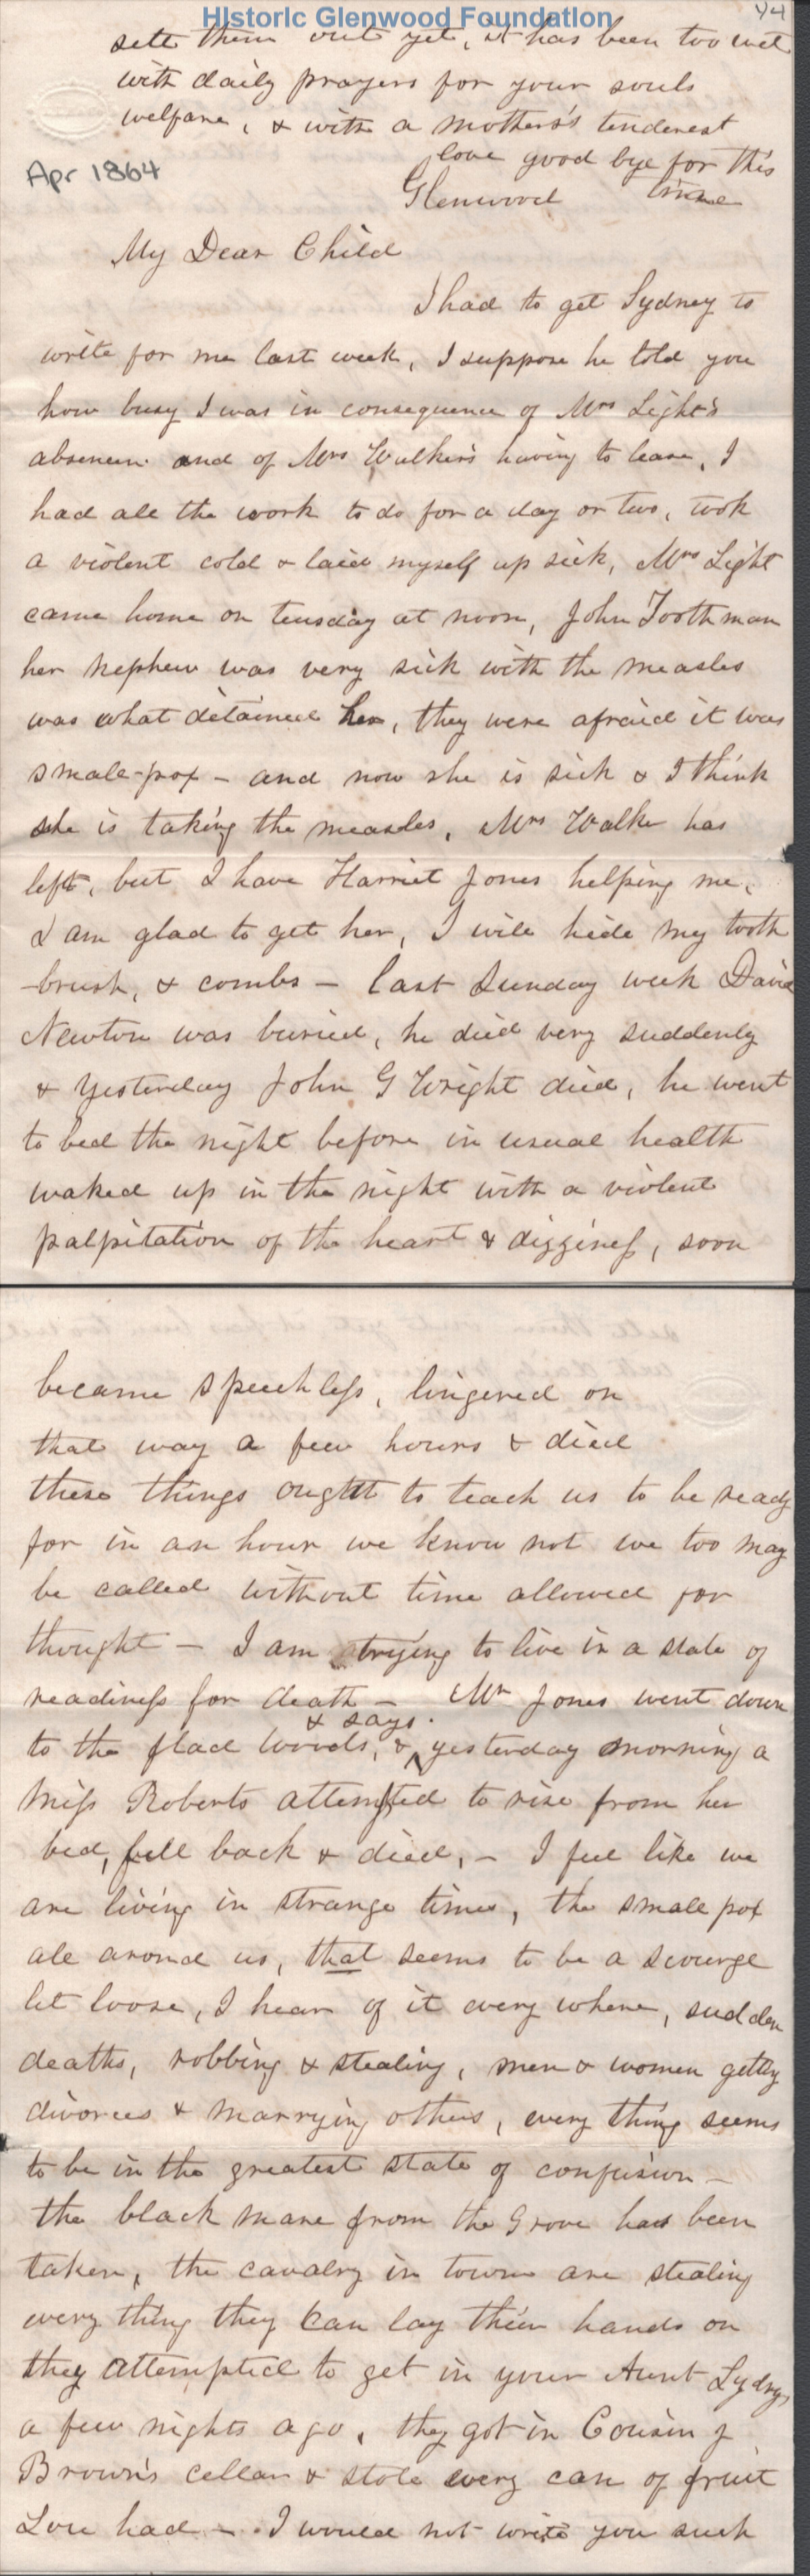 Historic Glenwood Foundation
44
sett them out yet, it has been too wet
with daily prayers for your souls
welfare, & with a mothers's tenderest
love good bye for this
time
Apr 1864
Glenwood
My Dear Child
I had to get Sydney to
write for me last week, I suppose he told you
how busy I was in consequence of Mrs Light's
absence and of Mrs Walkers having to leave, I
had all the work to do for a day or two, took
a violent cold & laid myself up sick, Mrs Light
came home on teusday at noon, John Toothman
her nephew was very sick with the measles
was what detained her, they were afraid it was
smale-pox - and now she is sick & I think
she is taking the measles, Mrs Walker has
left, but I have Harriet Jones helping me,
I am glad to get her, I will hide my tooth
-brush, & combs - last Sunday week David
Newton was buried, he died very suddenly
& yesterday John G Wright died, he went
to bed the night before in usual health
waked up in the night with a violent
palpitation of the heart & dizziness, soon
became speechless, lingered on
that way a few hours & died
these things ought to teach us to be ready
for in an hour we know not we too may
be called without time allowed for
thought - I am trying to live in a state of
readiness for death - Mr Jones went down
& says.
to the flad woods, & yesterday morning a
Miss Roberts attempted to rise from her
bed, fell back & died, - I feel like we
are living in strange times, the small pox
all around us, that seems to be a scourge
let loose, I hear of it every where, sudden
deaths, robbing & stealing, men & women getting
divorces & marrying others, every thing seems
to be in the greatest state of confusion -
the black mare from the Grove has been
taken, the cavalry in town are stealing
every thing they can lay their hands on
they attempted to get in your Aunt Lydnys
a few nights ago, they got in Cousin J
Brown's cellar & stole every can of fruit
Lou had - I would not write you such